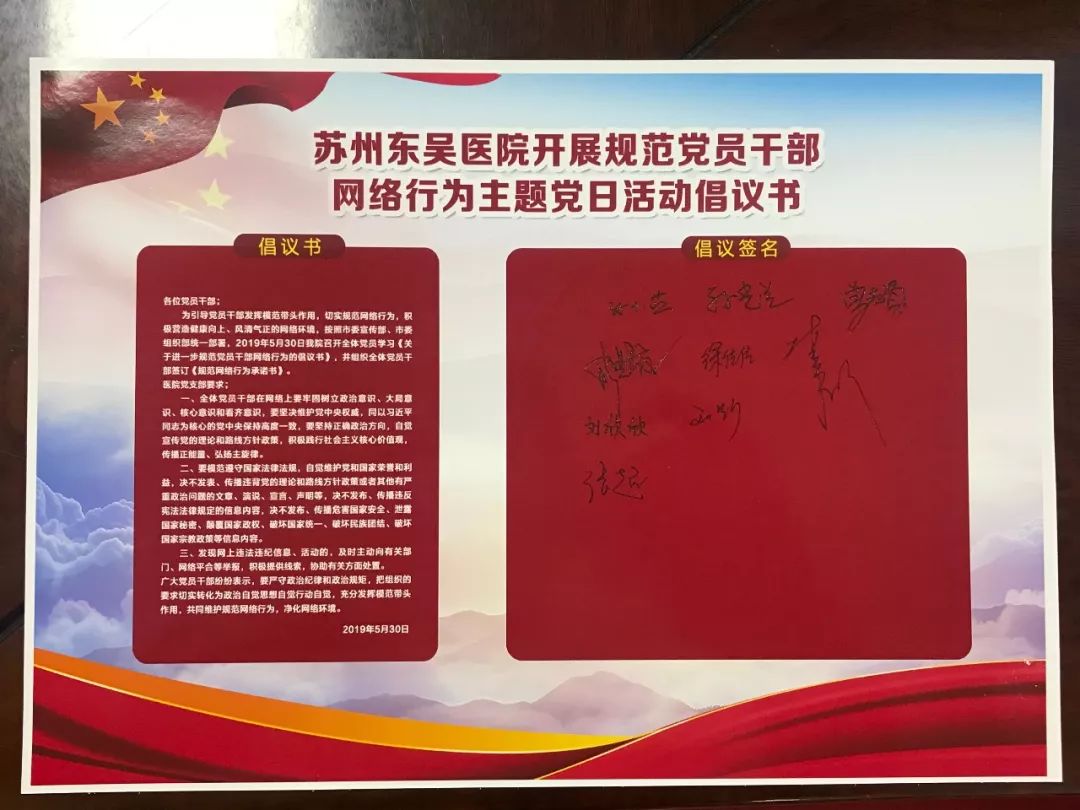 苏州东吴医院开展规范党员干部
网络行为主题党日活动倡议书
倡议书
各位党员干部；
为引导党员干部发挥模范带头作用，切实规范网络行为，积
极营造健康向上、风清气正的网络环境，按照市委宣传部、市委
组织部统一部署，2019年5月30日我院召开全体党员学习《关
于进一步规范党员干部网络行为的倡议书》，并组织全体党员干
部签订《规范网络行为承诺书》。
医院党支部要求；
一、全体党员干部在网络上要牢固树立政治意识、大局意
识、核心意识和看齐意识，要坚决维护党中央权威，同以习近平
同志为核心的党中央保持高度一致，要坚持正确政治方向，自觉
宣传党的理论和路线方针政策，积极践行社会主义核心价值观，
传播正能量、弘扬主旋律。
二、要模范遵守国家法律法规，自觉维护党和国家荣誉和利
益，决不发表、传播违背党的理论和路线方针政策或者其他有严
重政治问题的文章、演说、宣言、声明等，决不发布、传播违反
宪法法律规定的信息内容，决不发布、传播危害国家安全、泄露
国家秘密、颠覆国家政权、破坏国家统一、破坏民族团结、破坏
国家宗教政策等信息内容。
三、发现网上违法违纪信息、活动的，及时主动向有关部
门、网络平台等举报，积极提供线索，协助有关方面处置。
广大党员干部纷纷表示，要严守政治纪律和政治规矩，把组织的
要求切实转化为政治自觉思想自觉行动自觉，充分发挥模范带头
作用，共同维护规范网络行为，净化网络环境。
2019年5月30日
倡议签名
徐佳佳
张超